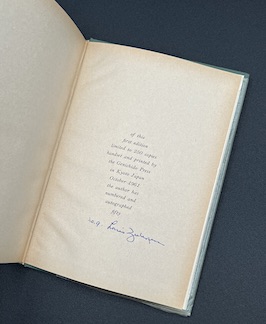 of this
first edition
limited to 200 copies
bound and printed by
the Genichido Press
in Kyoto Japan
October 1961
the author has
numbered and
autographed
fifty
no. 9 Louis Zukofsky